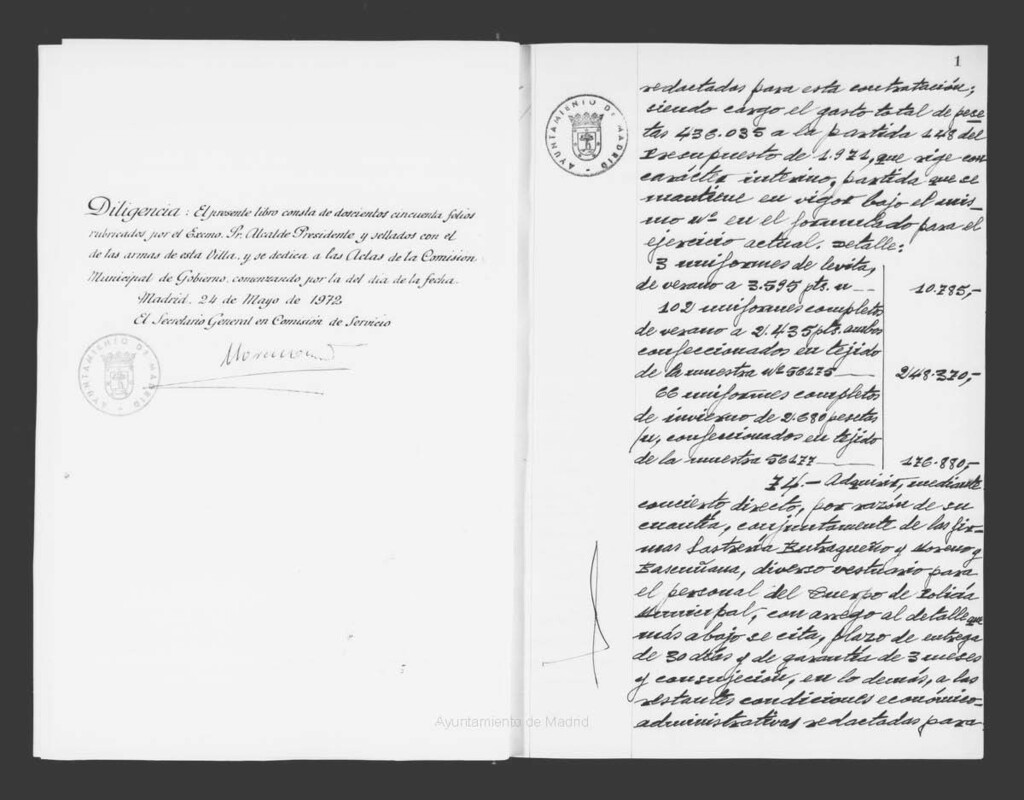 Diligencia: El presente libro consta de doscientos cincuenta folios
rubricados por el Excmo. Sr. Alcalde Presidente y sellados con el
de las armas de esta Villa, y se dedica a las Actas de la Comisión
Municipal de Gobierno, comenzando por la del día de la fecha.
Madrid, 24 de Mayo de 1972
El Secretario General en Comisión de Servicio
AYUNTAMIENTO DE MADRID
1
AYUNTAMIENTO DE MADRID
redactadas para esta contratación;
siendo cargo el gasto total de pese
tas 436.035 a la partida 148 del
Presupuesto de 1.971, que rige con
carácter interino, partida que se
mantiene en vigor bajo el mis-
mo nº en el formulado para el
ejercicio actual. Detalle:
3 uniformes de levita,
de verano a 3.595 pts. u 10.785,-
102 uniformes completos
de verano a 2.435 pts. ambos
confeccionados en tejido
de la muestra nº 56175 248.370,-
66 uniformes completos
de invierno de 2.680 pesetas
/u, confeccionados en tejido
de la muestra 56177 176.880,-
74.- Adquirir, mediante
concierto directo, por razón de su
cuantía, conjuntamente de las fir-
mas Sastrería Butragueño y Moreno y
Bascuñana, diverso vestuario para
el personal del Cuerpo de Policía
Municipal, con arreglo al detalle que
más abajo se cita, plazo de entrega
de 30 días y de garantía de 3 meses
y con sujeción, en lo demás, a las
restantes condiciones económico-
administrativas redactadas para
Ayuntamiento de Madrid